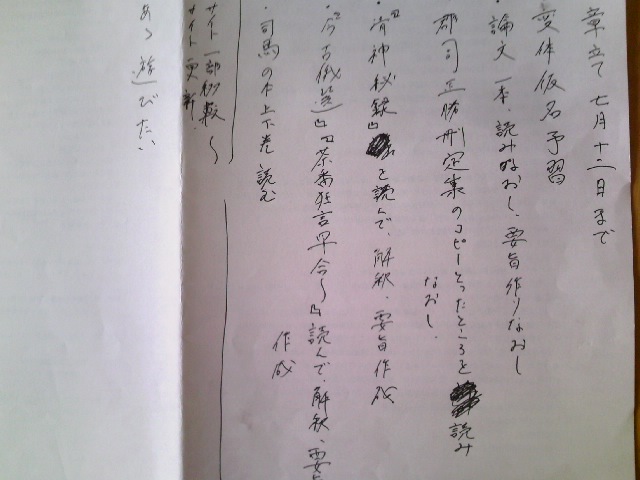 章立て 七月十二日まで
変体仮名予習
・論文一本、読みなおし、要旨作りなおし
郡司正勝刪定集のコピーとったところを読み
なおし、
・『神秘録』を読んで、解釈、要旨作成
・『古今俄選』『茶番狂言早合〜』読んで、解釈、要旨
作成
・司馬の 上下巻 読む
サイト一部移転〜
サイト更新、
あゝ遊びたい